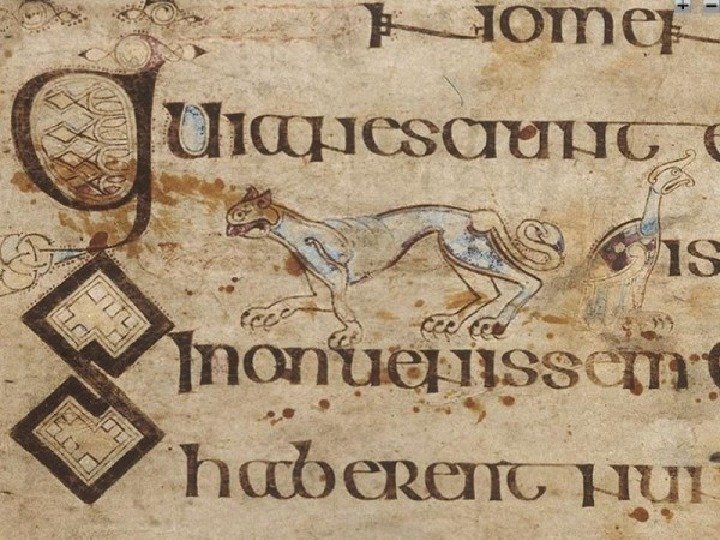 nomen
quia nesciunt e
is
Si non uenissem
haberent nun